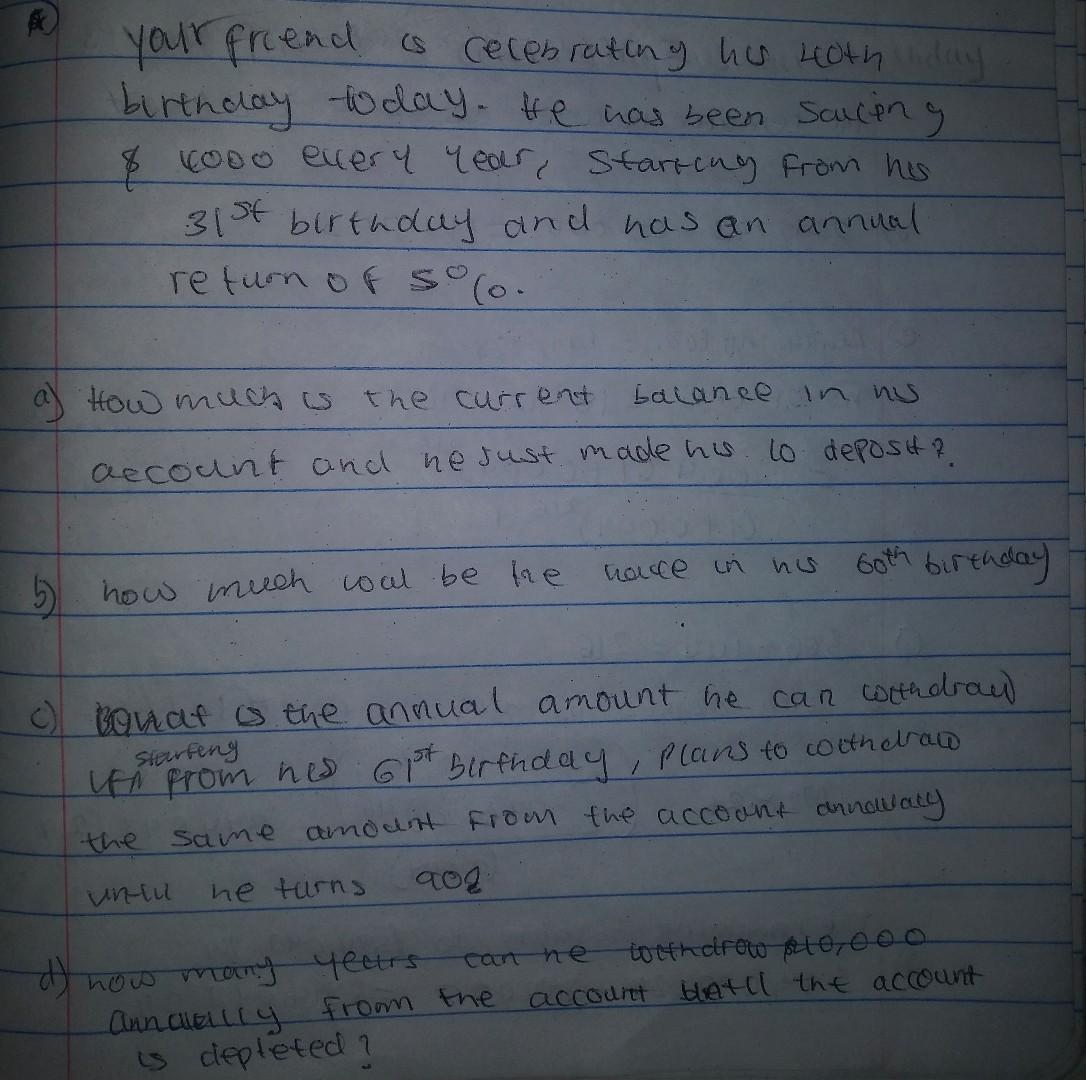 your friend is celebrating his 40th
birthday today. He has been saving
$ 4000 every year, starting from his
31st birthday and has an annual
return of 5%.
a) How much is the current balance in his
account and he just made his 10 deposit?
b) how much will be he have in his 60th birthday
c) What is the annual amount he can withdraw
starting
if from his 61st birthday, plans to withdraw
the same amount from the account annually
until he turns 90?
d) how many years can he withdraw $10,000
annually from the account until the account
is depleted?